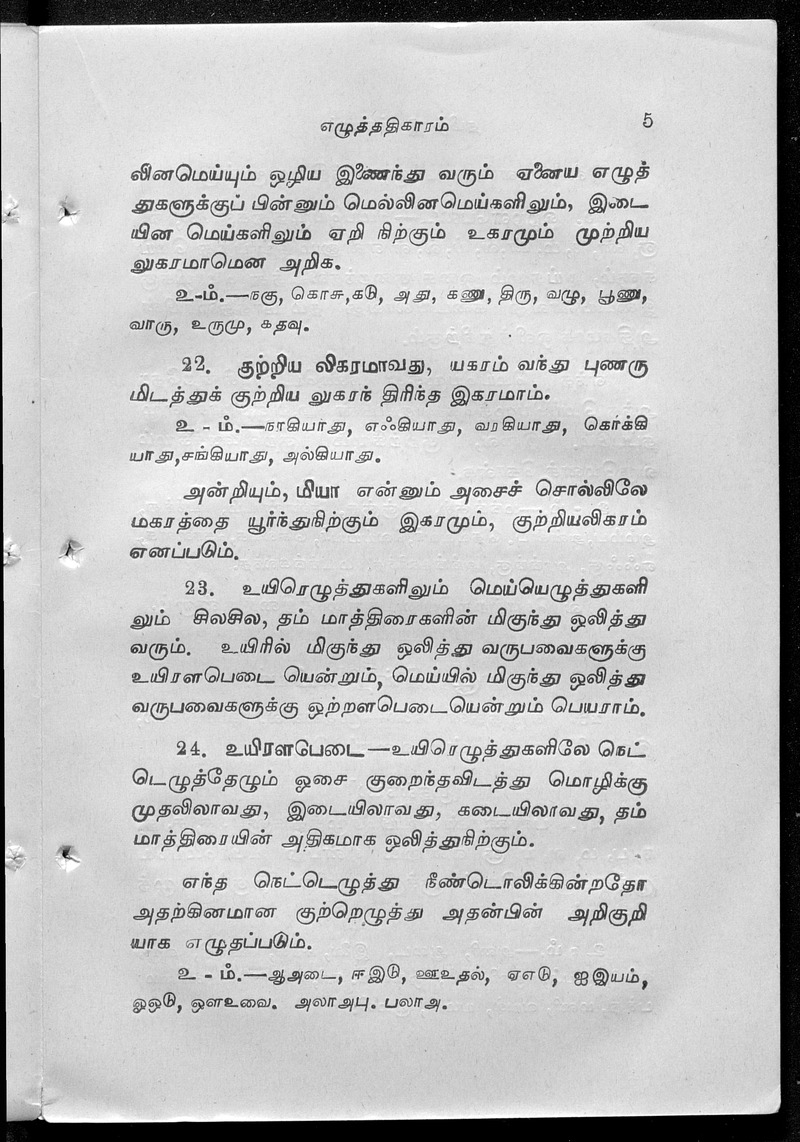 எழுத்ததிகாரம் 5
லினமெய்யும் ஒழிய இணைந்து வரும் ஏனைய எழுத்
துகளுக்குப் பின்னும் மெல்லினமெய்களிலும், இடை
யின மெய்களிலும் ஏறி நிற்கும் உகரமும் முற்றிய
லுகரமாமென அறிக.
உ-ம்.—நகு, கொசு,கடு, அது, கணு, திரு, வழு, பூணு,
வாரு, உருமு, கதவு.
22. குற்றிய லிகரமாவது, யகரம் வந்து புணரு
மிடத்துக் குற்றிய லுகரந் திரிந்த இகரமாம்.
உ - ம்.—நாகியாது, எஃகியாது, வரகியாது, கொக்கி
யாது,சங்கியாது, அல்கியாது.
அன்றியும், மியா என்னும் அசைச் சொல்லிலே
மகரத்தை யூர்ந்துநிற்கும் இகரமும், குற்றியலிகரம்
எனப்படும்.
23. உயிரெழுத்துகளிலும் மெய்யெழுத்துகளி
லும் சிலசில, தம் மாத்திரைகளின் மிகுந்து ஒலித்து
வரும். உயிரில் மிகுந்து ஒலித்து வருபவைகளுக்கு
உயிரளபெடை யென்றும், மெய்யில் மிகுந்து ஒலித்து
வருபவைகளுக்கு ஒற்றளபெடையென்றும் பெயராம்.
24. உயிரளபேடை—உயிரெழுத்துகளிலே நெட்
டெழுத்தேழும் ஓசை குறைந்தவிடத்து மொழிக்கு
முதலிலாவது, இடையிலாவது, கடையிலாவது, தம்
மாத்திரையின் அதிகமாக ஒலித்துநிற்கும்.
எந்த நெட்டெழுத்து நீண்டொலிக்கின்றதோ
அதற்கினமான குற்றெழுத்து அதன்பின் அறிகுறி
யாக எழுதப்படும்.
உ - ம்.—ஆஅடை, ஈஇடு, ஊஉதல், ஏஎடு, ஐஇயம்,
ஓஒடு, ஔஉவை. அலாஅபு. பலாஅ.